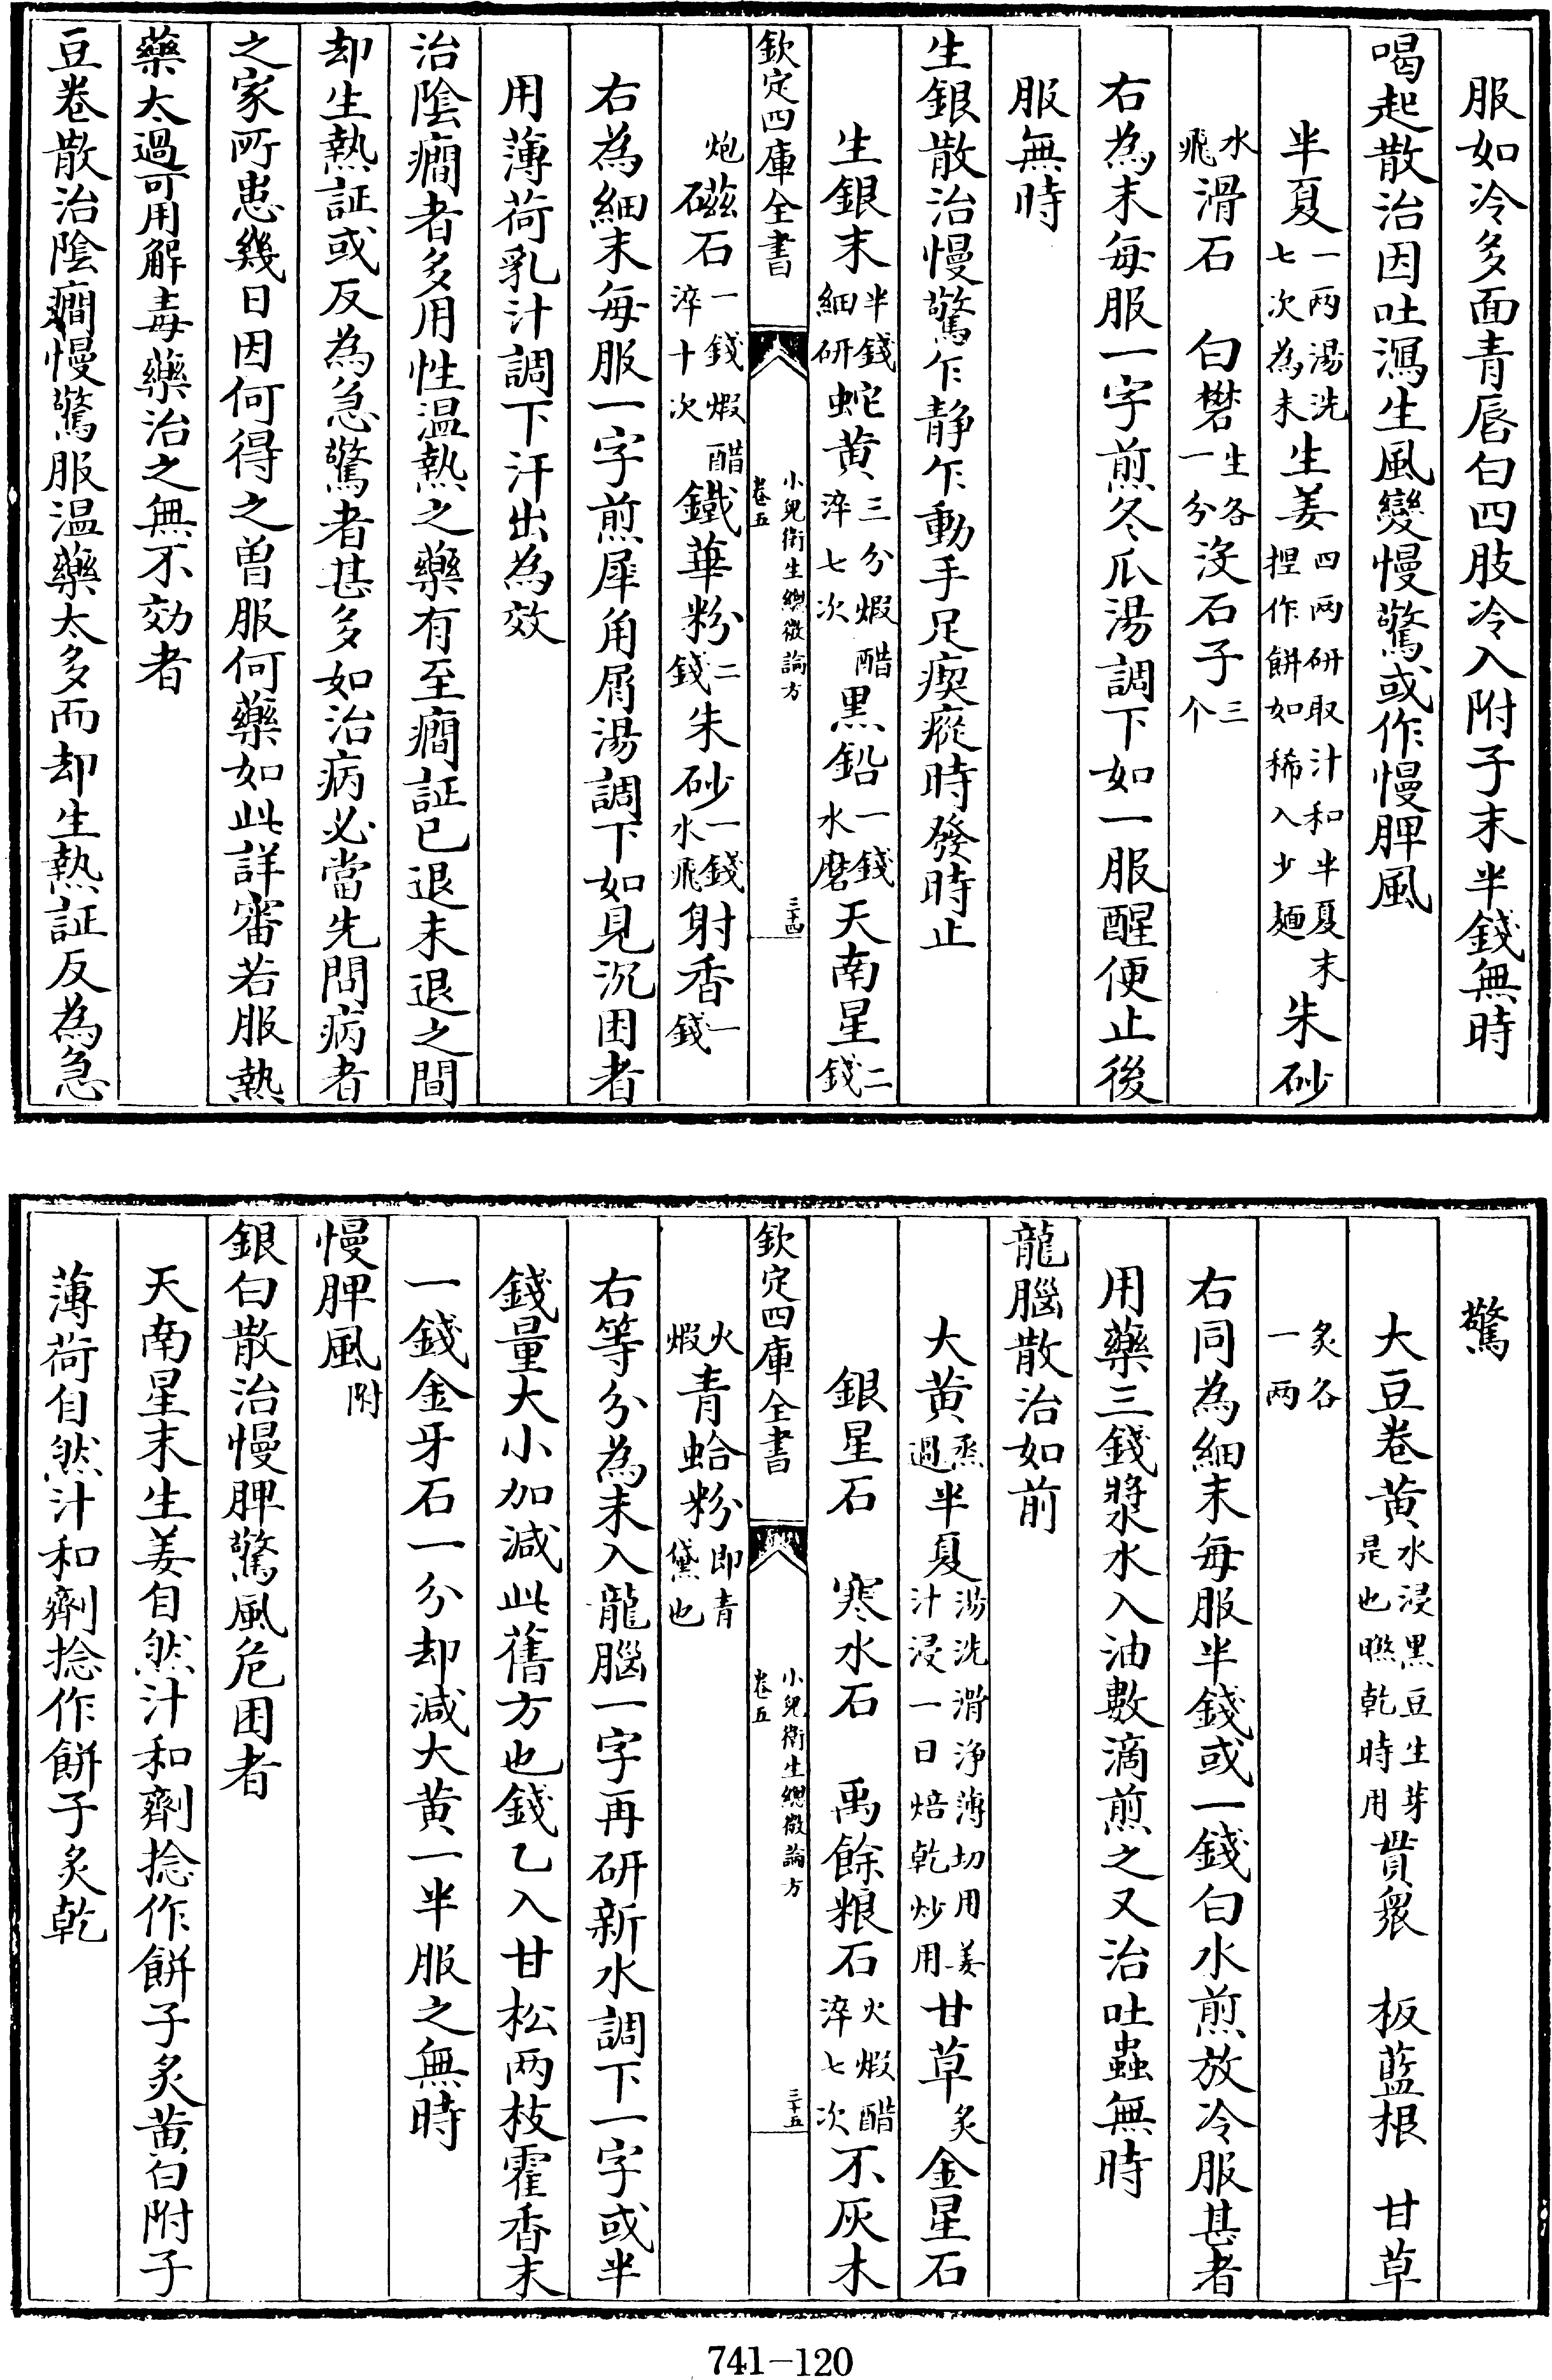 服如冷多面青唇白四肢冷入附子末半錢無時
喝起散治因吐瀉生風變慢驚或作慢脾風
半夏一两湯洗七次為末生姜四两研取汁和半夏末捏作餅如稀入少麵朱砂
水飛滑石　白礬生各一分沒石子三个
右為末每服一字煎冬瓜湯調下如一服醒便止後
服無時
生銀散治慢驚乍静乍動手足瘈瘲時發時止
生銀末半錢細研蛇黄三分煅醋淬七次黒鉛一錢水磨天南星二錢
欽定四庫全書　小兒衛生總微論方卷五　三十四
炮磁石一錢煅醋淬十次鐵華粉二錢朱砂一錢水飛射香一錢
右為細末每服一字煎犀角屑湯調下如見沉困者
用薄荷乳汁調下汗出為效
治陰癎者多用性温熱之藥有至癎証已退未退之間
却生熱証或反為急驚者甚多如治病必當先問病者
之家所患幾日因何得之曽服何藥如此詳審若服熱
藥太過可用解毒藥治之無不効者
豆卷散治陰癎慢驚服温藥太多而却生熱証反為急
驚
大豆卷黄水浸黒豆生芽是也㬠乾時用貫衆　板藍根　甘草
炙各一两
右同為細末每服半錢或一錢白水煎放冷服甚者
用藥三錢漿水入油數滴煎之又治吐蟲無時
龍腦散治如前
大黄烝過半夏湯洗滑浄薄切用姜汁浸一日焙乾炒用甘草炙金星石
銀星石　寒水石　禹餘粮石火煅醋淬七次不灰木
欽定四庫全書　小兒衛生總微論方卷五　三十五
火煅青蛤粉即青黛也
右等分為末入龍腦一字再研新水調下一字或半
錢量大小加減此舊方也錢乙入甘松两枝霍香末
一錢金牙石一分却減大黄一半服之無時
慢脾風附
銀白散治慢脾驚風危困者
天南星末生姜自然汁和劑捻作餅子炙黄白附子
薄荷自然汁和劑捻作餅子炙乾
741—120